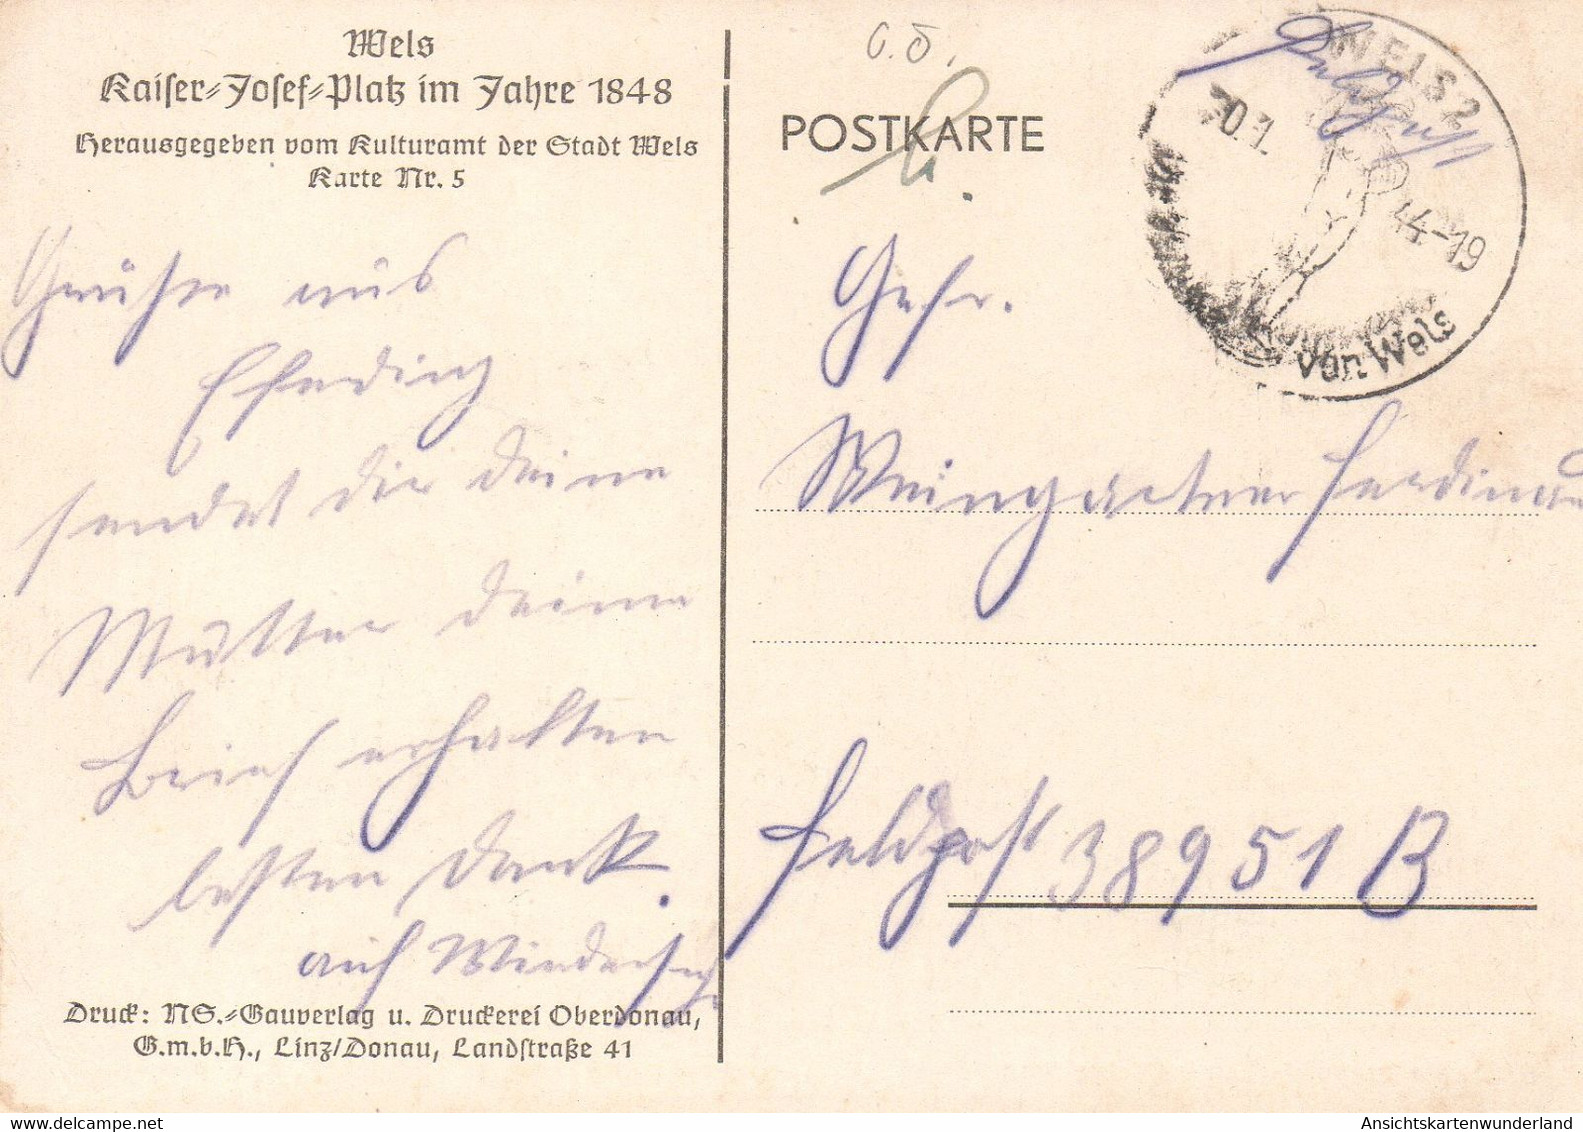 Wels
Kaiser-Josef-Platz im Jahre 1848
Herausgegeben vom Kulturamt der Stadt Wels
Karte Nr. 5
Grüße aus
Eferding
sendet dir deine
Mutter deine
Brief erhalten
besten Dank.
auf Wiedersehn
Druck: NS.-Gauverlag u. Druckerei Oberdonau,
G.m.b.H., Linz/Donau, Landstraße 41
POSTKARTE
Feldpost
WELS 2
44-19
von Wels
Gefr.
Weingartner Ferdinand
Feldpost 38951 B
Ansichtskartenwunderland